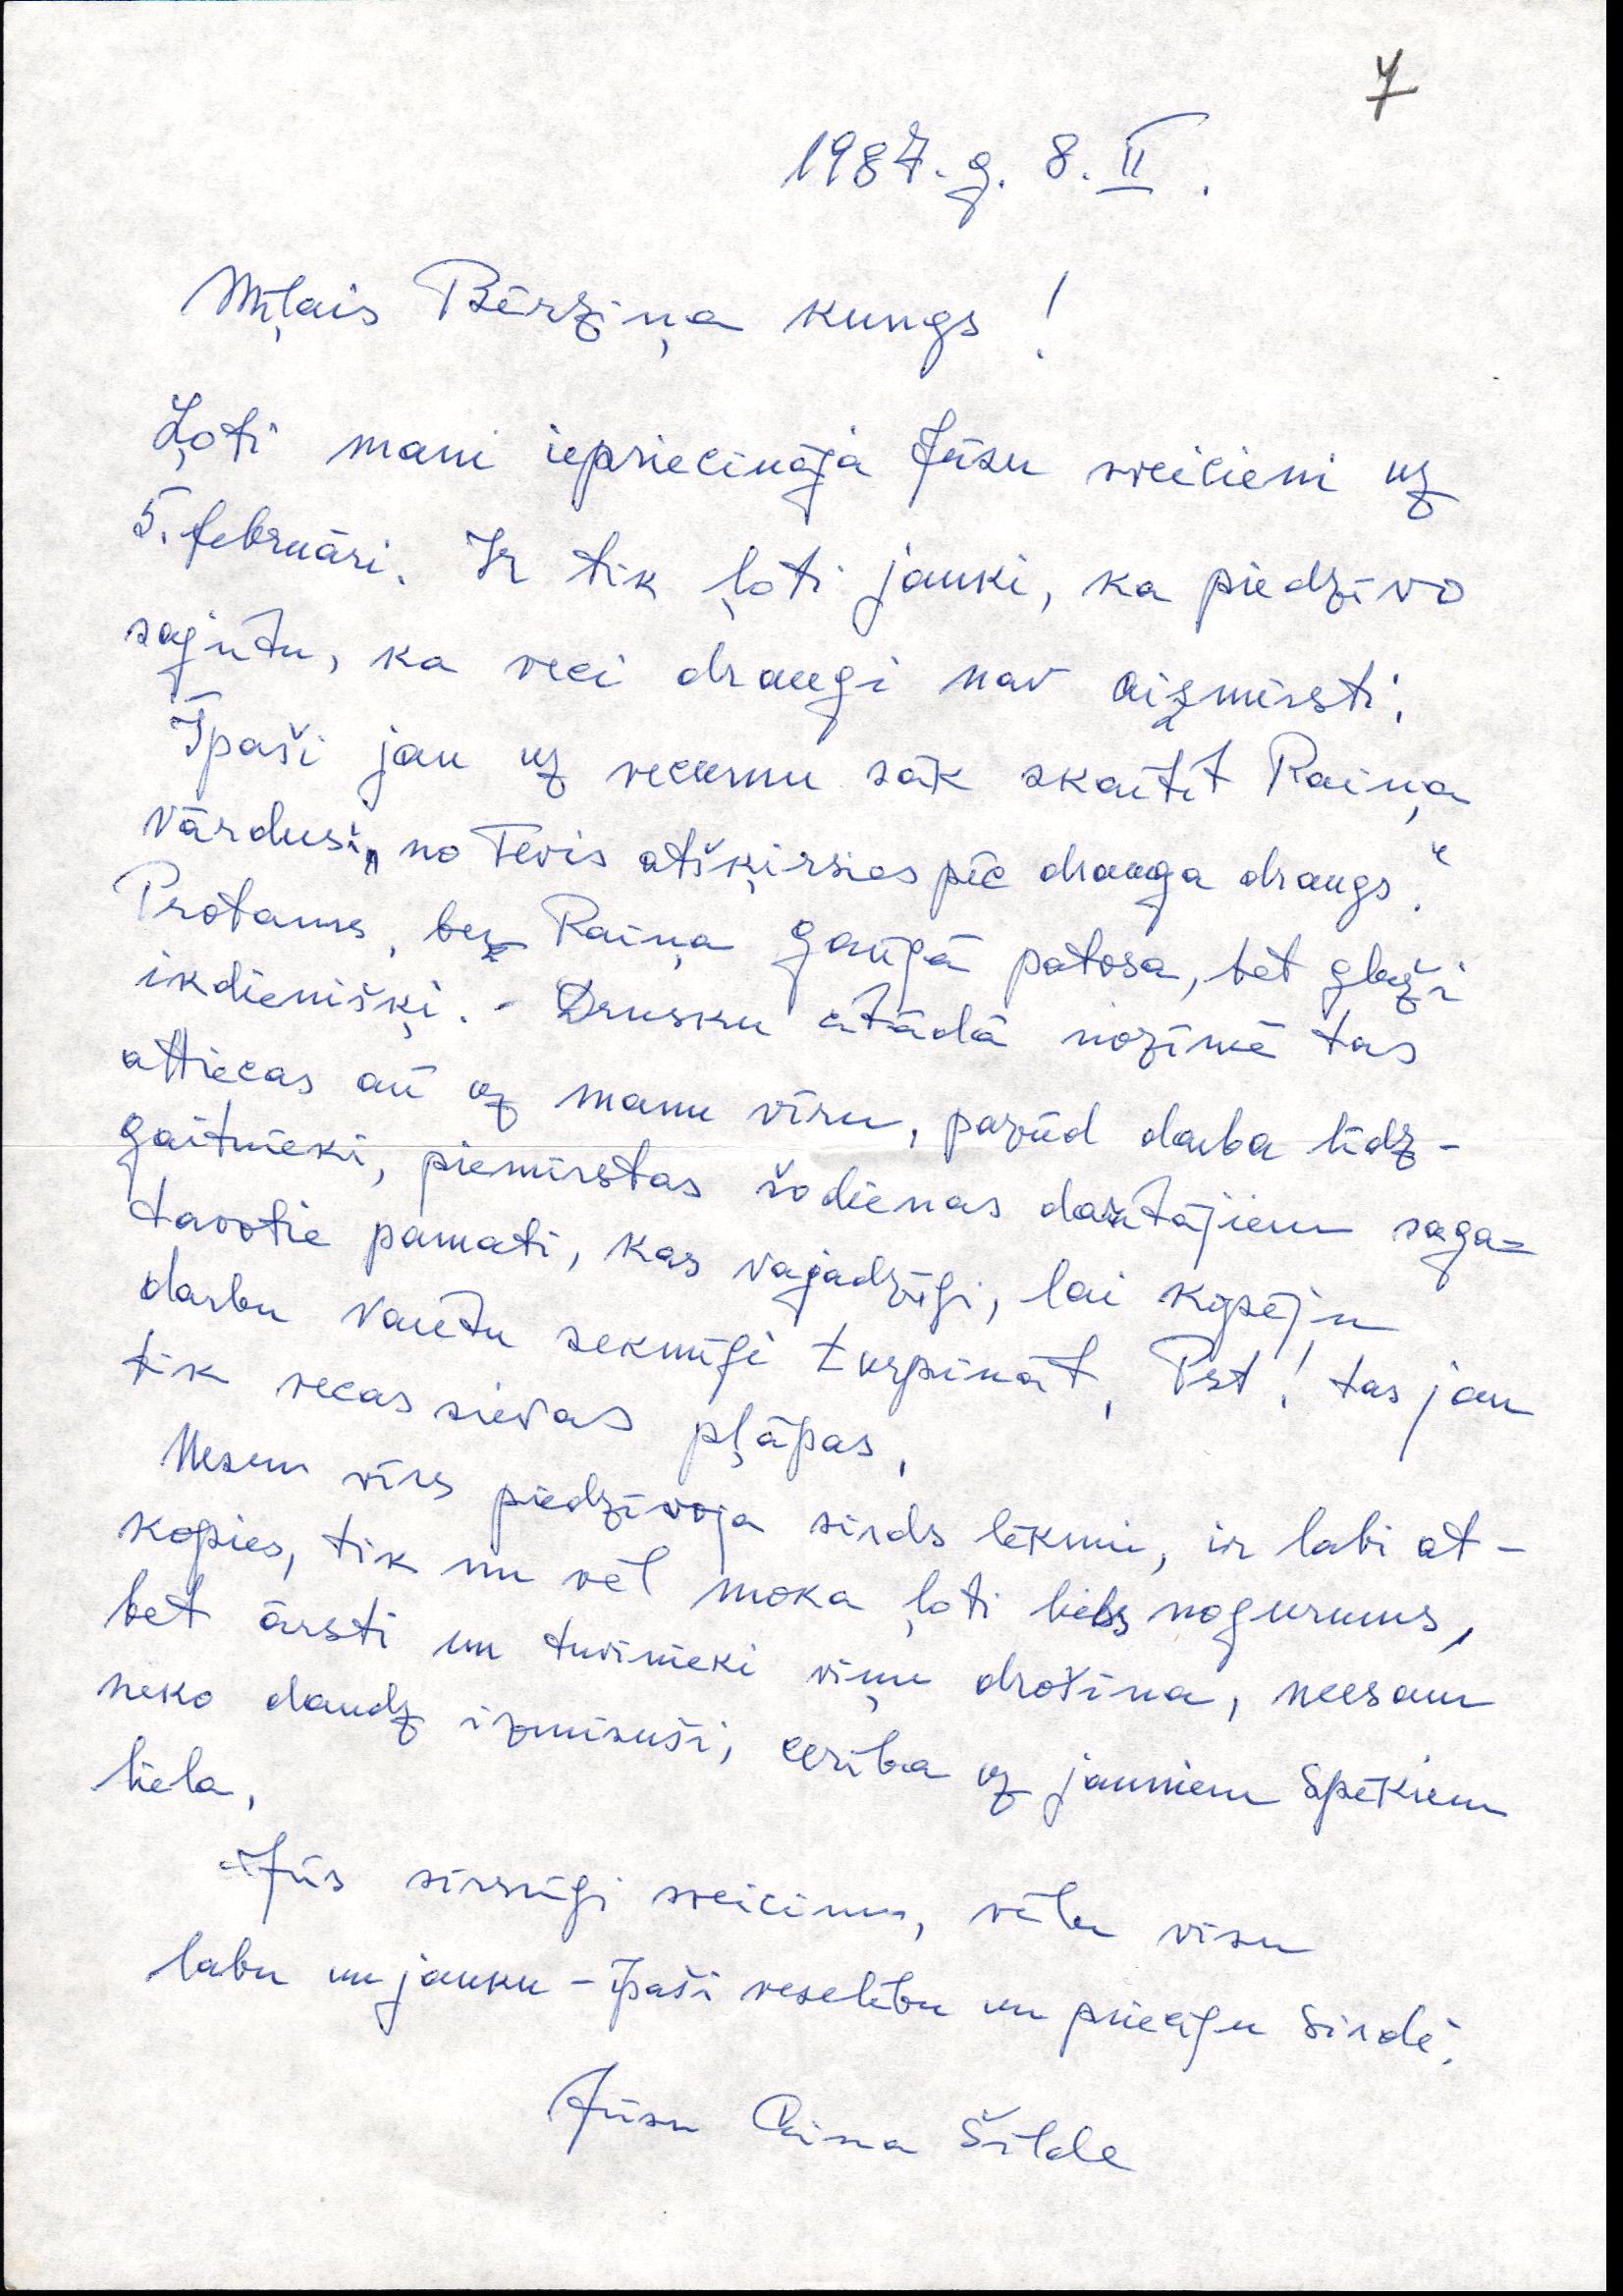 7
1987. g. 8. II.
Mīļais Bērziņa kungs!
Ļoti mani iepriecināja Jūsu sveicieni uz
5. februāri. Ir tik ļoti jauki, ka piedzīvo
sajūtu, ka veci draugi nav aizmirsti.
Īpaši jau uz vecumu sāk skaitīt Raiņa
vārdus: „no Tevis atšķirsies pēc drauga draugs."
Protams, bez Raiņa gaŗā patosa, bet gluži
ikdienišķi. - Drusku citādā nozīmē tas
attiecas arī uz manu vīru, pazūd darba līdz-
gaitnieki, piemirstas šodienas darītājiem saga-
tavotie pamati, kas vajadzīgi, lai kopēju
darbu varētu sekmīgi turpināt. Pst! tas jau
tik vecas sievas pļāpas.
Mesen vīrs piedzīvoja sirds lēkmi, ir labi at-
kopies, tik nu vēl moka ļoti liels nogurums,
bet ārsti un tuvinieki viņu drošina, neesam
neko daudz izmisuši, cerība uz jauniem spēkiem
liela.
Jūs sirsnīgi sveicinu, vēlu visu
labu un jauku - īpaši veselību un prieku sirdē.
Jūsu Aina Šilde